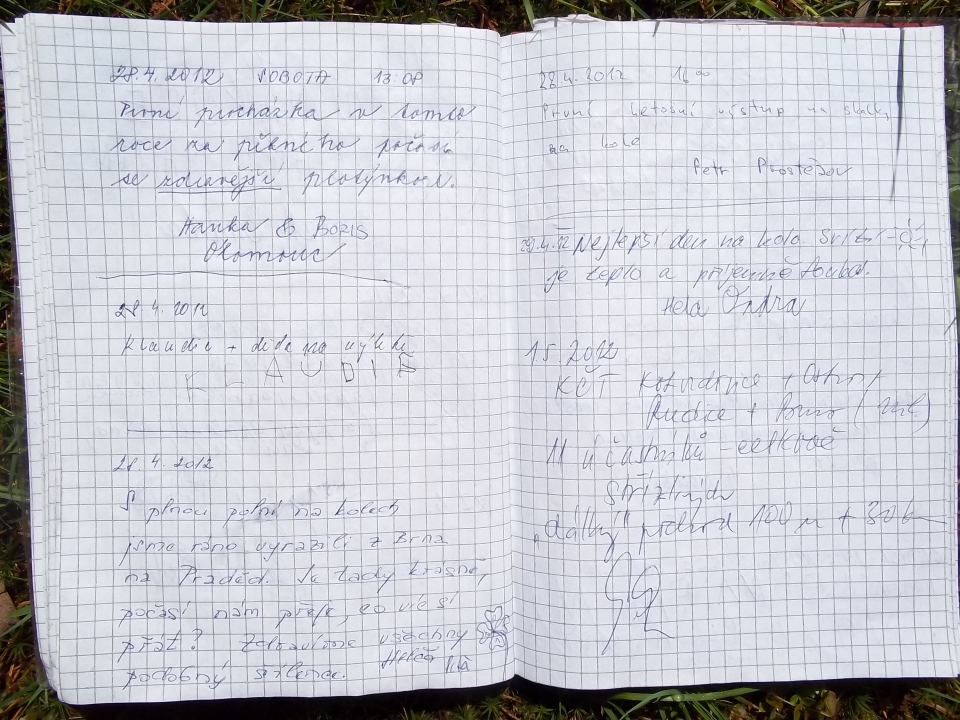 28.4.2012 SOBOTA 13:08
První procházka v tomto
roce za pěkného počasí
se zdravější polovičkou.
Hanka & Boris
Olomouc
28.4.2012
Klaudie + děda na výletě
KLAUDIE
28.4.2012
S plnou polní na kolech
jsme ráno vyrazili z Brna
na Praděd. Je tady krásně,
počasí nám přeje, co víc si
přát? Zdravíme všechny
podobný šílence.
28.4.2012 16⁰⁰
První letošní výstup na skálu,
na kole
Petr Prostějov
29.4.12 Nejlepší den na kolo. Svítí
je teplo a příjemně fouká.
Hela Ondra
1.5.2012
KČT +
Rudice + Brno
11 účastníků - celkově
"dálkový" pochod 100 km +